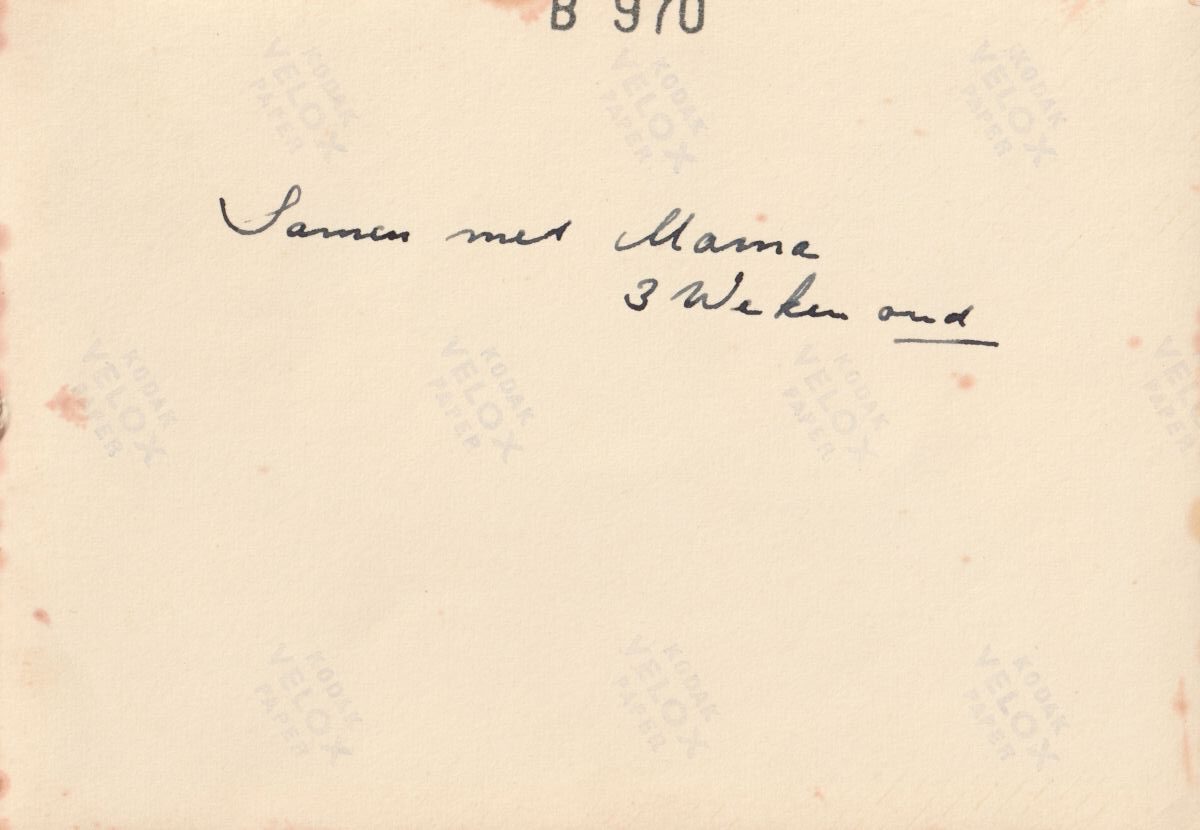 B 970
KODAK
VELOX
PAPER
KODAK
VELOX
PAPER
KODAK
VELOX
PAPER
Samen met Mama
3 Weken oud
KODAK
VELOX
PAPER
KODAK
VELOX
PAPER
KODAK
VELOX
PAPER
KODAK
VELOX
PAPER
KODAK
VELOX
PAPER
KODAK
VELOX
PAPER
KODAK
VELOX
PAPER